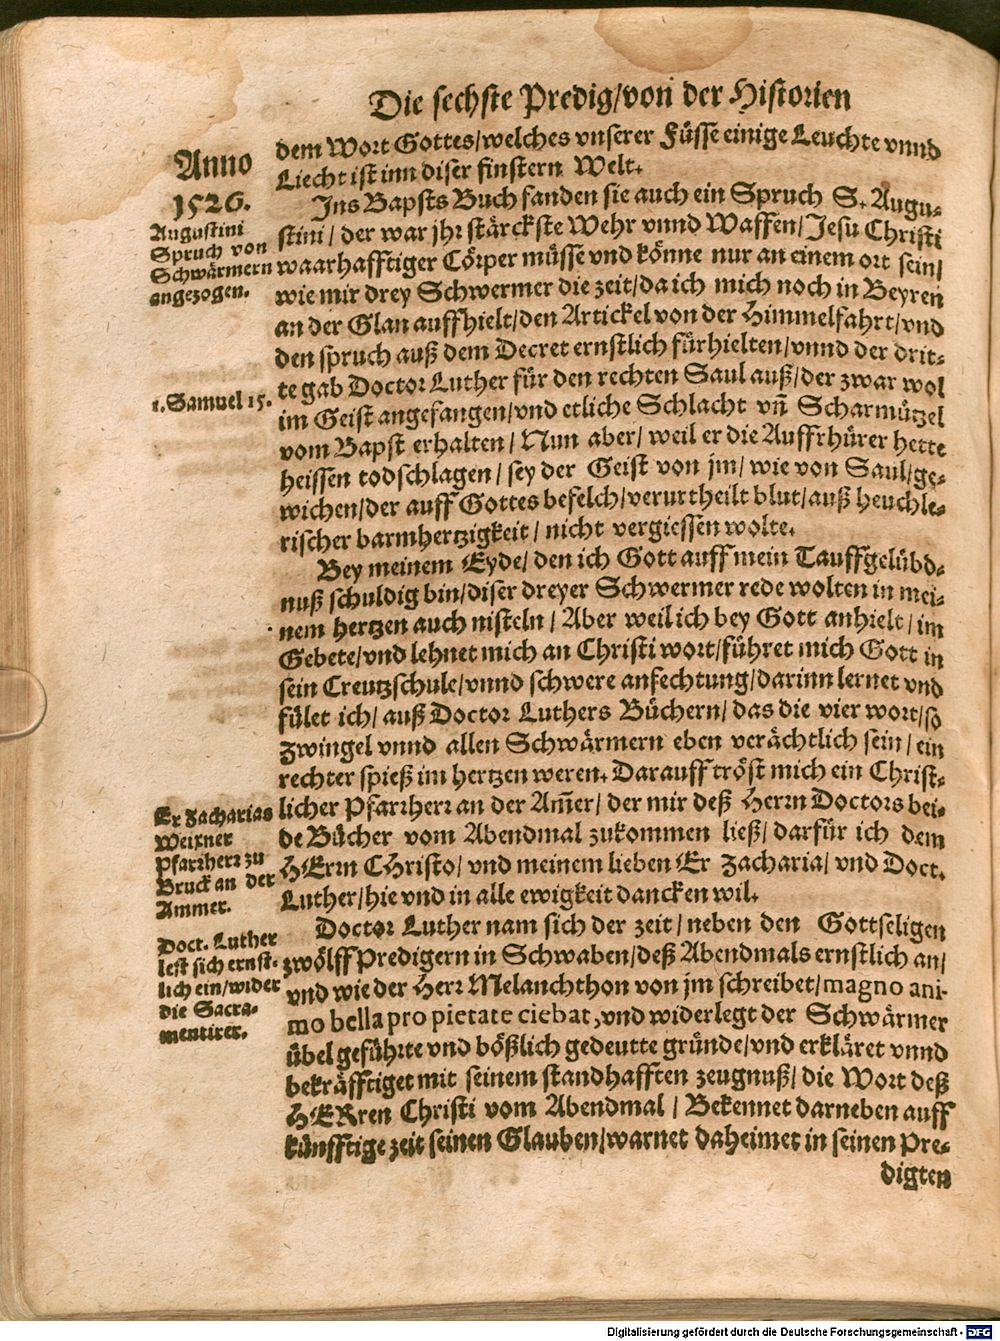 Die sechste Predig/von der Historien
dem Wort Gottes/welches vnserer Füsse einige Leuchte vnnd
Liecht ist inn diser finstern Welt.
Anno
1526.
Ins Bapsts Buch fanden sie auch ein Spruch S. Augu-
stini/ der war jhr stärckste Wehr vnnd Waffen/ Jesu Christi
waarhafftiger Cörper müsse vnd könne nur an einem ort sein/
wie mir drey Schwermer die zeit/da ich mich noch in Beyren
Augustini
Spruch von
Schwärmern
angezogen.
an der Glan auffhielt/den Artickel von der Himmelfahrt/vnd
den spruch auß dem Decret ernstlich fürhielten/vnnd der drit-
te gab Doctor Luther für den rechten Saul auß/der zwar wol
1. Samuel 15.
im Geist angefangen/vnd etliche Schlacht vñ Scharmützel
vom Bapst erhalten/ Nun aber/ weil er die Auffrhürer hette
heissen todschlagen/ sey der Geist von jm/ wie von Saul/ge-
wichen/der auff Gottes befelch/verurtheilt blut/auß heuchle-
rischer barmhertzigkeit/ nicht vergiessen wolte.
Bey meinem Eyde/ den ich Gott auff mein Tauffgelübd-
nuß schuldig bin/diser dreyer Schwermer rede wolten in mei-
nem hertzen auch nisteln/ Aber weil ich bey Gott anhielt/ im
Gebete/vnd lehnet mich an Christi wort/führet mich Gott in
sein Creutzschule/vnnd schwere anfechtung/darinn lernet vnd
fület ich/ auß Doctor Luthers Büchern/ das die vier wort/so
Zwingel vnnd allen Schwärmern eben verächtlich sein/ ein
rechter spieß im hertzen weren. Darauff tröst mich ein Christ-
licher Pfarrherr an der Am̃er/ der mir deß Herrn Doctors bei-
de Bücher vom Abendmal zukommen ließ/ darfür ich dem
HErrn CHristo/ vnd meinem lieben Er Zacharia/ vnd Doct.
Luther/hie vnd in alle ewigkeit dancken wil.
Er Zacharias
Weixner
Pfarrherr zu
Bruck an der
Ammer.
Doctor Luther nam sich der zeit/ neben den Gottseligen
zwölff Predigern in Schwaben/deß Abendmals ernstlich an/
vnd wie der Herr Melanchthon von jm schreibet/magno ani-
mo bella pro pietate ciebat,vnd widerlegt der Schwärmer
Doct. Luther
lest sich ernst-
lich ein/wider
die Sacra-
mentirer.
übel geführte vnd bößlich gedeutte gründe/vnd erkläret vnnd
bekräfftiget mit seinem standhafften zeugnuß/ die Wort deß
HERren Christi vom Abendmal/ Bekennet darneben auff
künfftige zeit seinen Glauben/warnet daheimet in seinen Pre-
digten
Digitalisierung gefördert durch die Deutsche Forschungsgemeinschaft - DFG